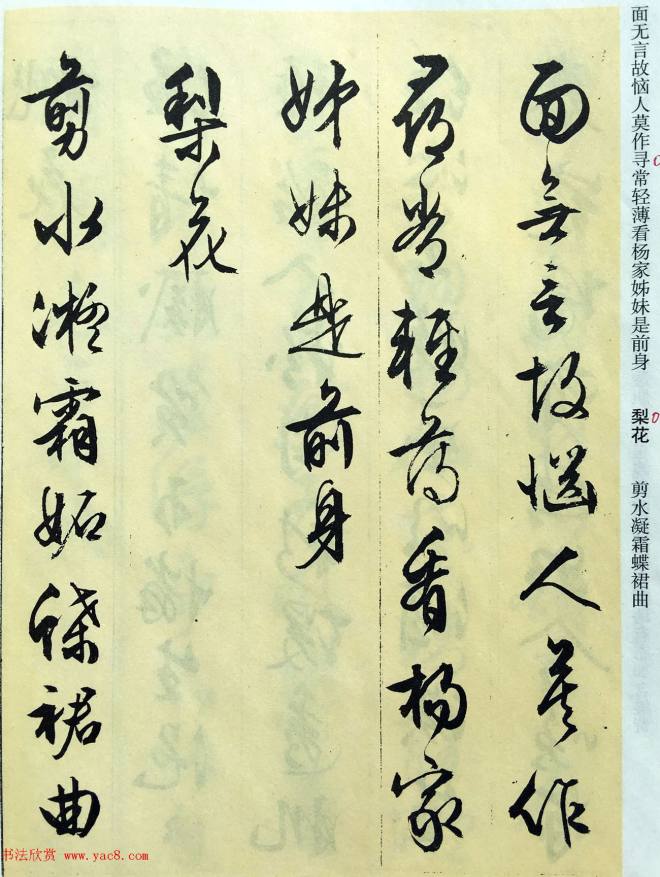 面无言故恼人莫作寻常轻薄看杨家姊妹是前身 梨花 剪水凝霜蝶裙曲
面無言故惱人莫作
尋常輕薄看楊家
姊妹是前身
梨花
剪水凝霜妬蝶裙曲
书法欣赏 www.yac8.com